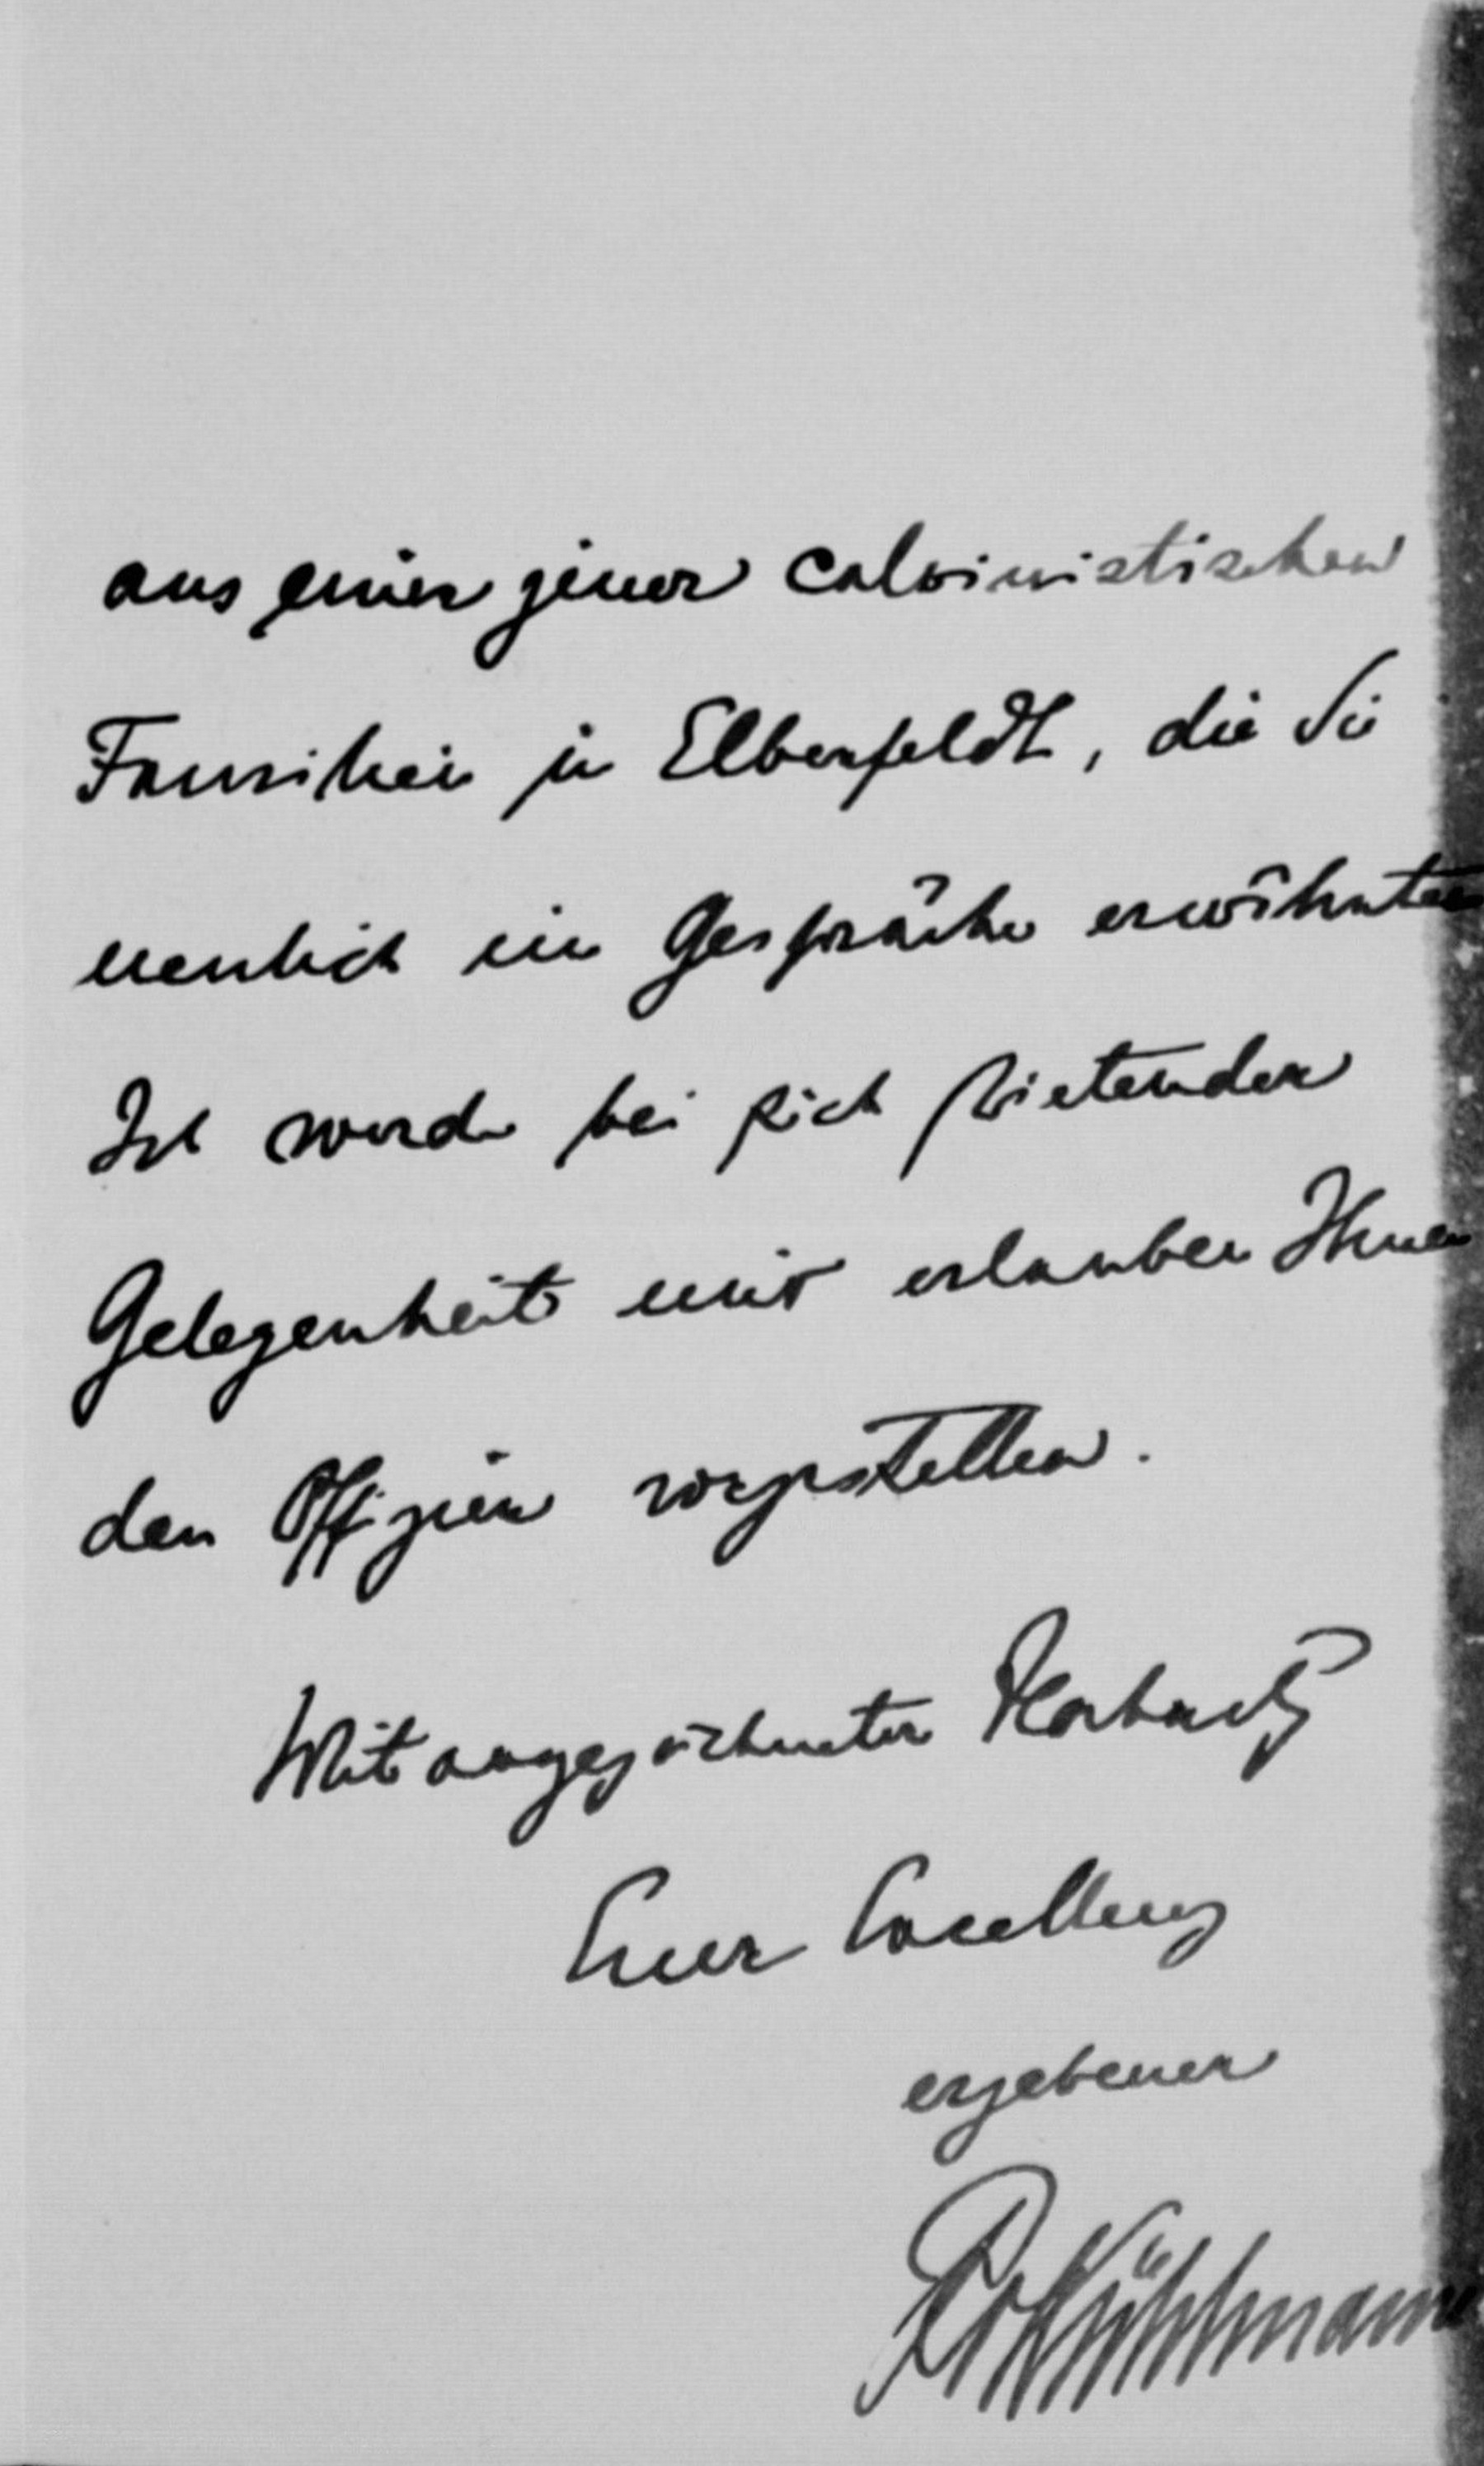 aus einer jener calvinistischen
Familien in Elberfeldt, die Sie
neulich im Gespräche erwähnten
Ich werde bei sich bietender
Gelegenheit mir erlauben Ihnen
den Offizier vorzustellen.
Mit ausgezeichneter Hochachtg
Euer Excellenz
ergebener
RvKühlmann